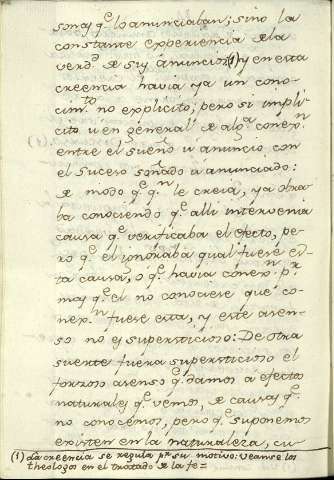 sonas q.e lo anunciaban; sino la
constante experiencia de la
verd.d de sus anuncios (1) y en esta
creencia havia ya un cono-
cim.to no explícito, pero sí impli-
cito u en general de alg.a conex.n
entre el sueño u anuncio con
el suceso soñado ó anunciado:
de modo q.e q.n le creía, ya obra-
ba conociendo q.e alli intervenia
causa q.e verificaba el efecto, pe-
ro q.e el ignoraba qual fuere es-
ta causa, o q.e havia conex.n p.r
mas q.e el no conociere que co-
nex.n fuere esta, y este asen-
so no es supersticioso: De otra
suerte fuera supersticioso el
forzoso asenso q.e damos á efectos
naturales q.e vemos, de causas q.e
no conocemos, pero q.e suponemos
existen en la naturaleza, cu-
(1) La creencia se regula p.r su motivo: veanse los
theologos en el tratado de la fe=